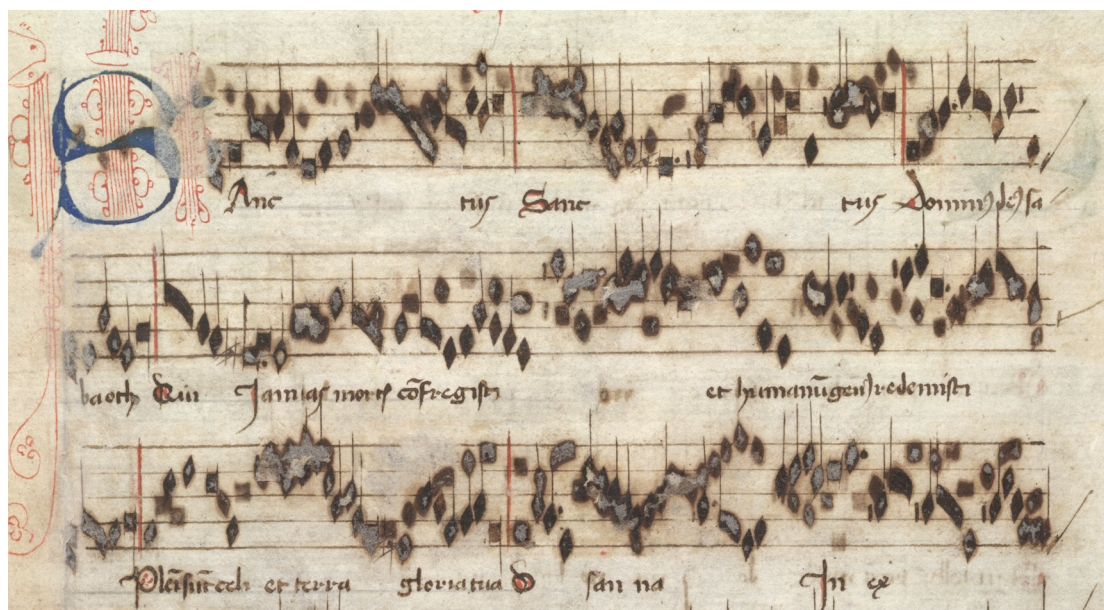 SAnc tus Sanc tus Dominus deus sa
baoth Qui Januas mortis cōfregisti et humanū genus redemisti
Pleni sūt celi et terra gloria tua O san na In ex